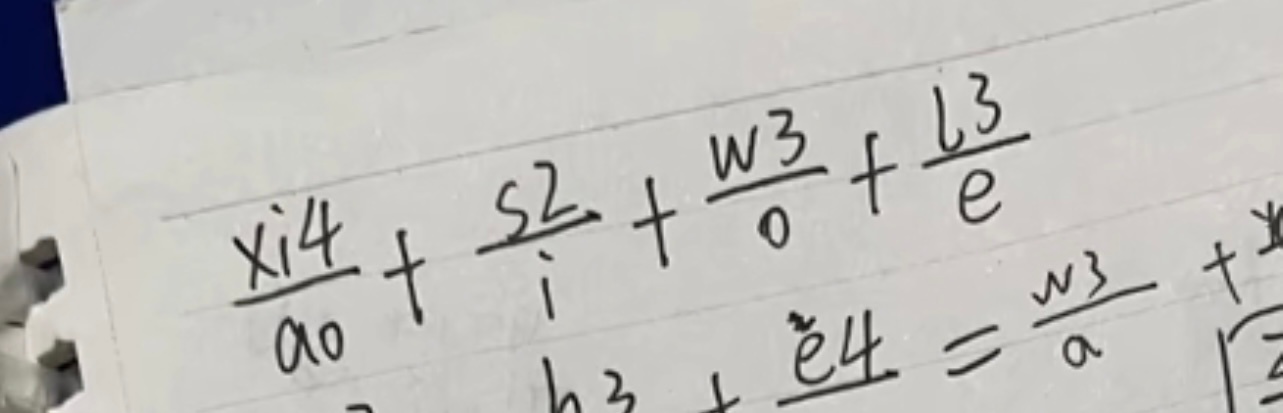 xi4/ao + s2/i + w3/o + l3/e
h3 + ě4 = w3/a +